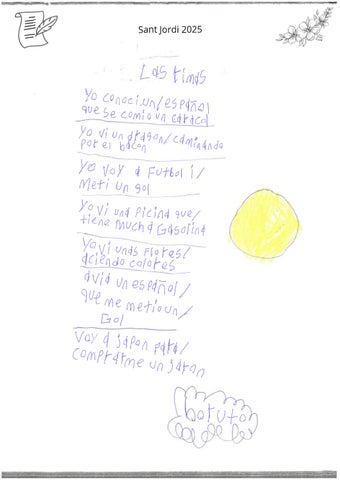 Sant Jordi 2025
Las rimas
Yo conoci un/español
que se comio un caracol
Yo vi un dragon/caminando
por el balcon
Yo voy a Futbol i/
Meti un gol
Yo vi una Picina que/
tiene mucha Gasolina
Yo vi unas Flores/
aciendo colores
avia un español/
que me metio un/
Gol
Voy a Japon para/
comprarme un Jaron
boruto